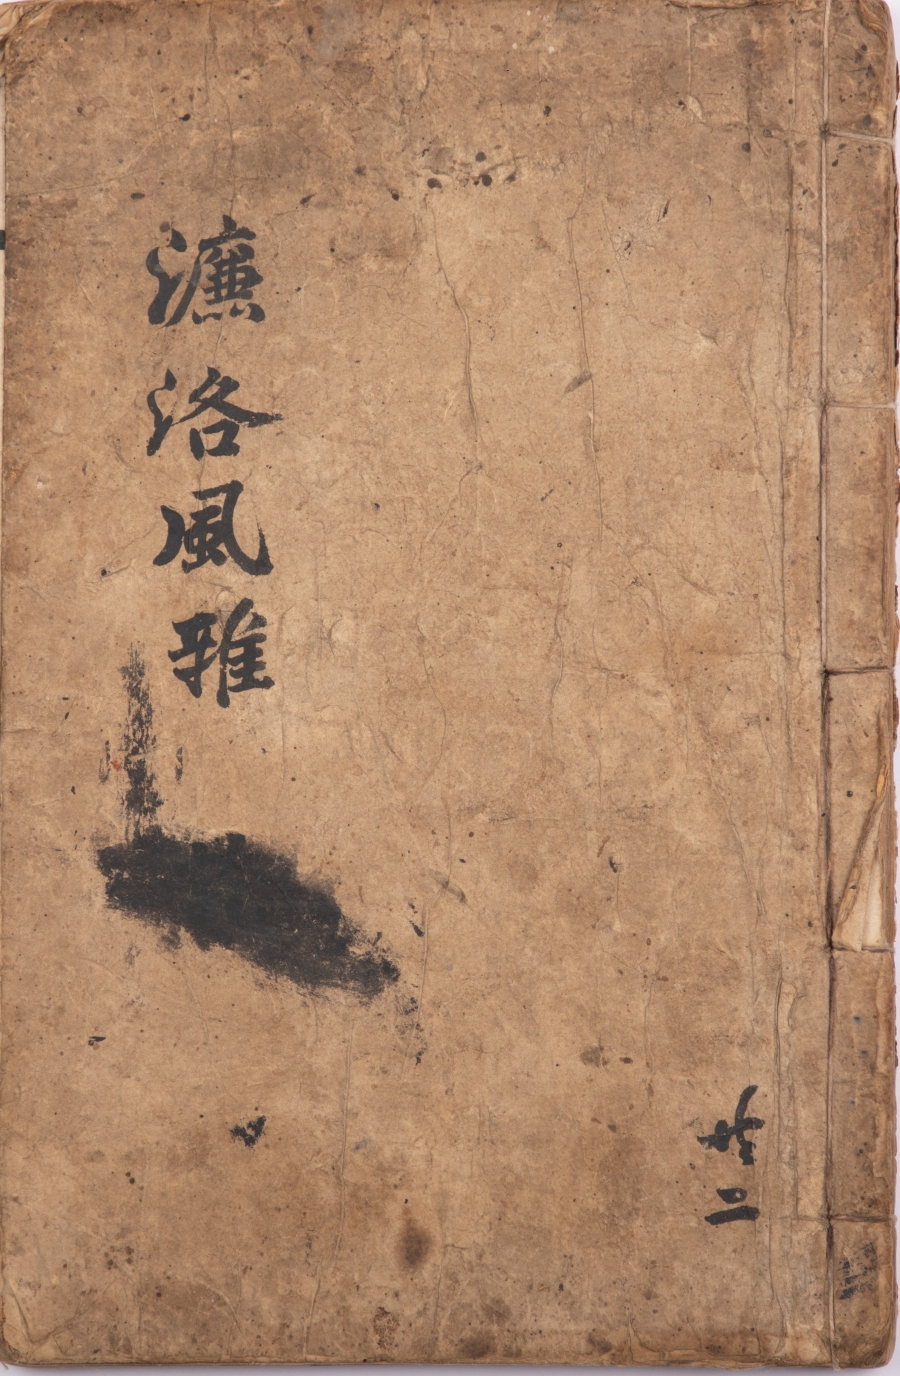 濂洛風雅
共二